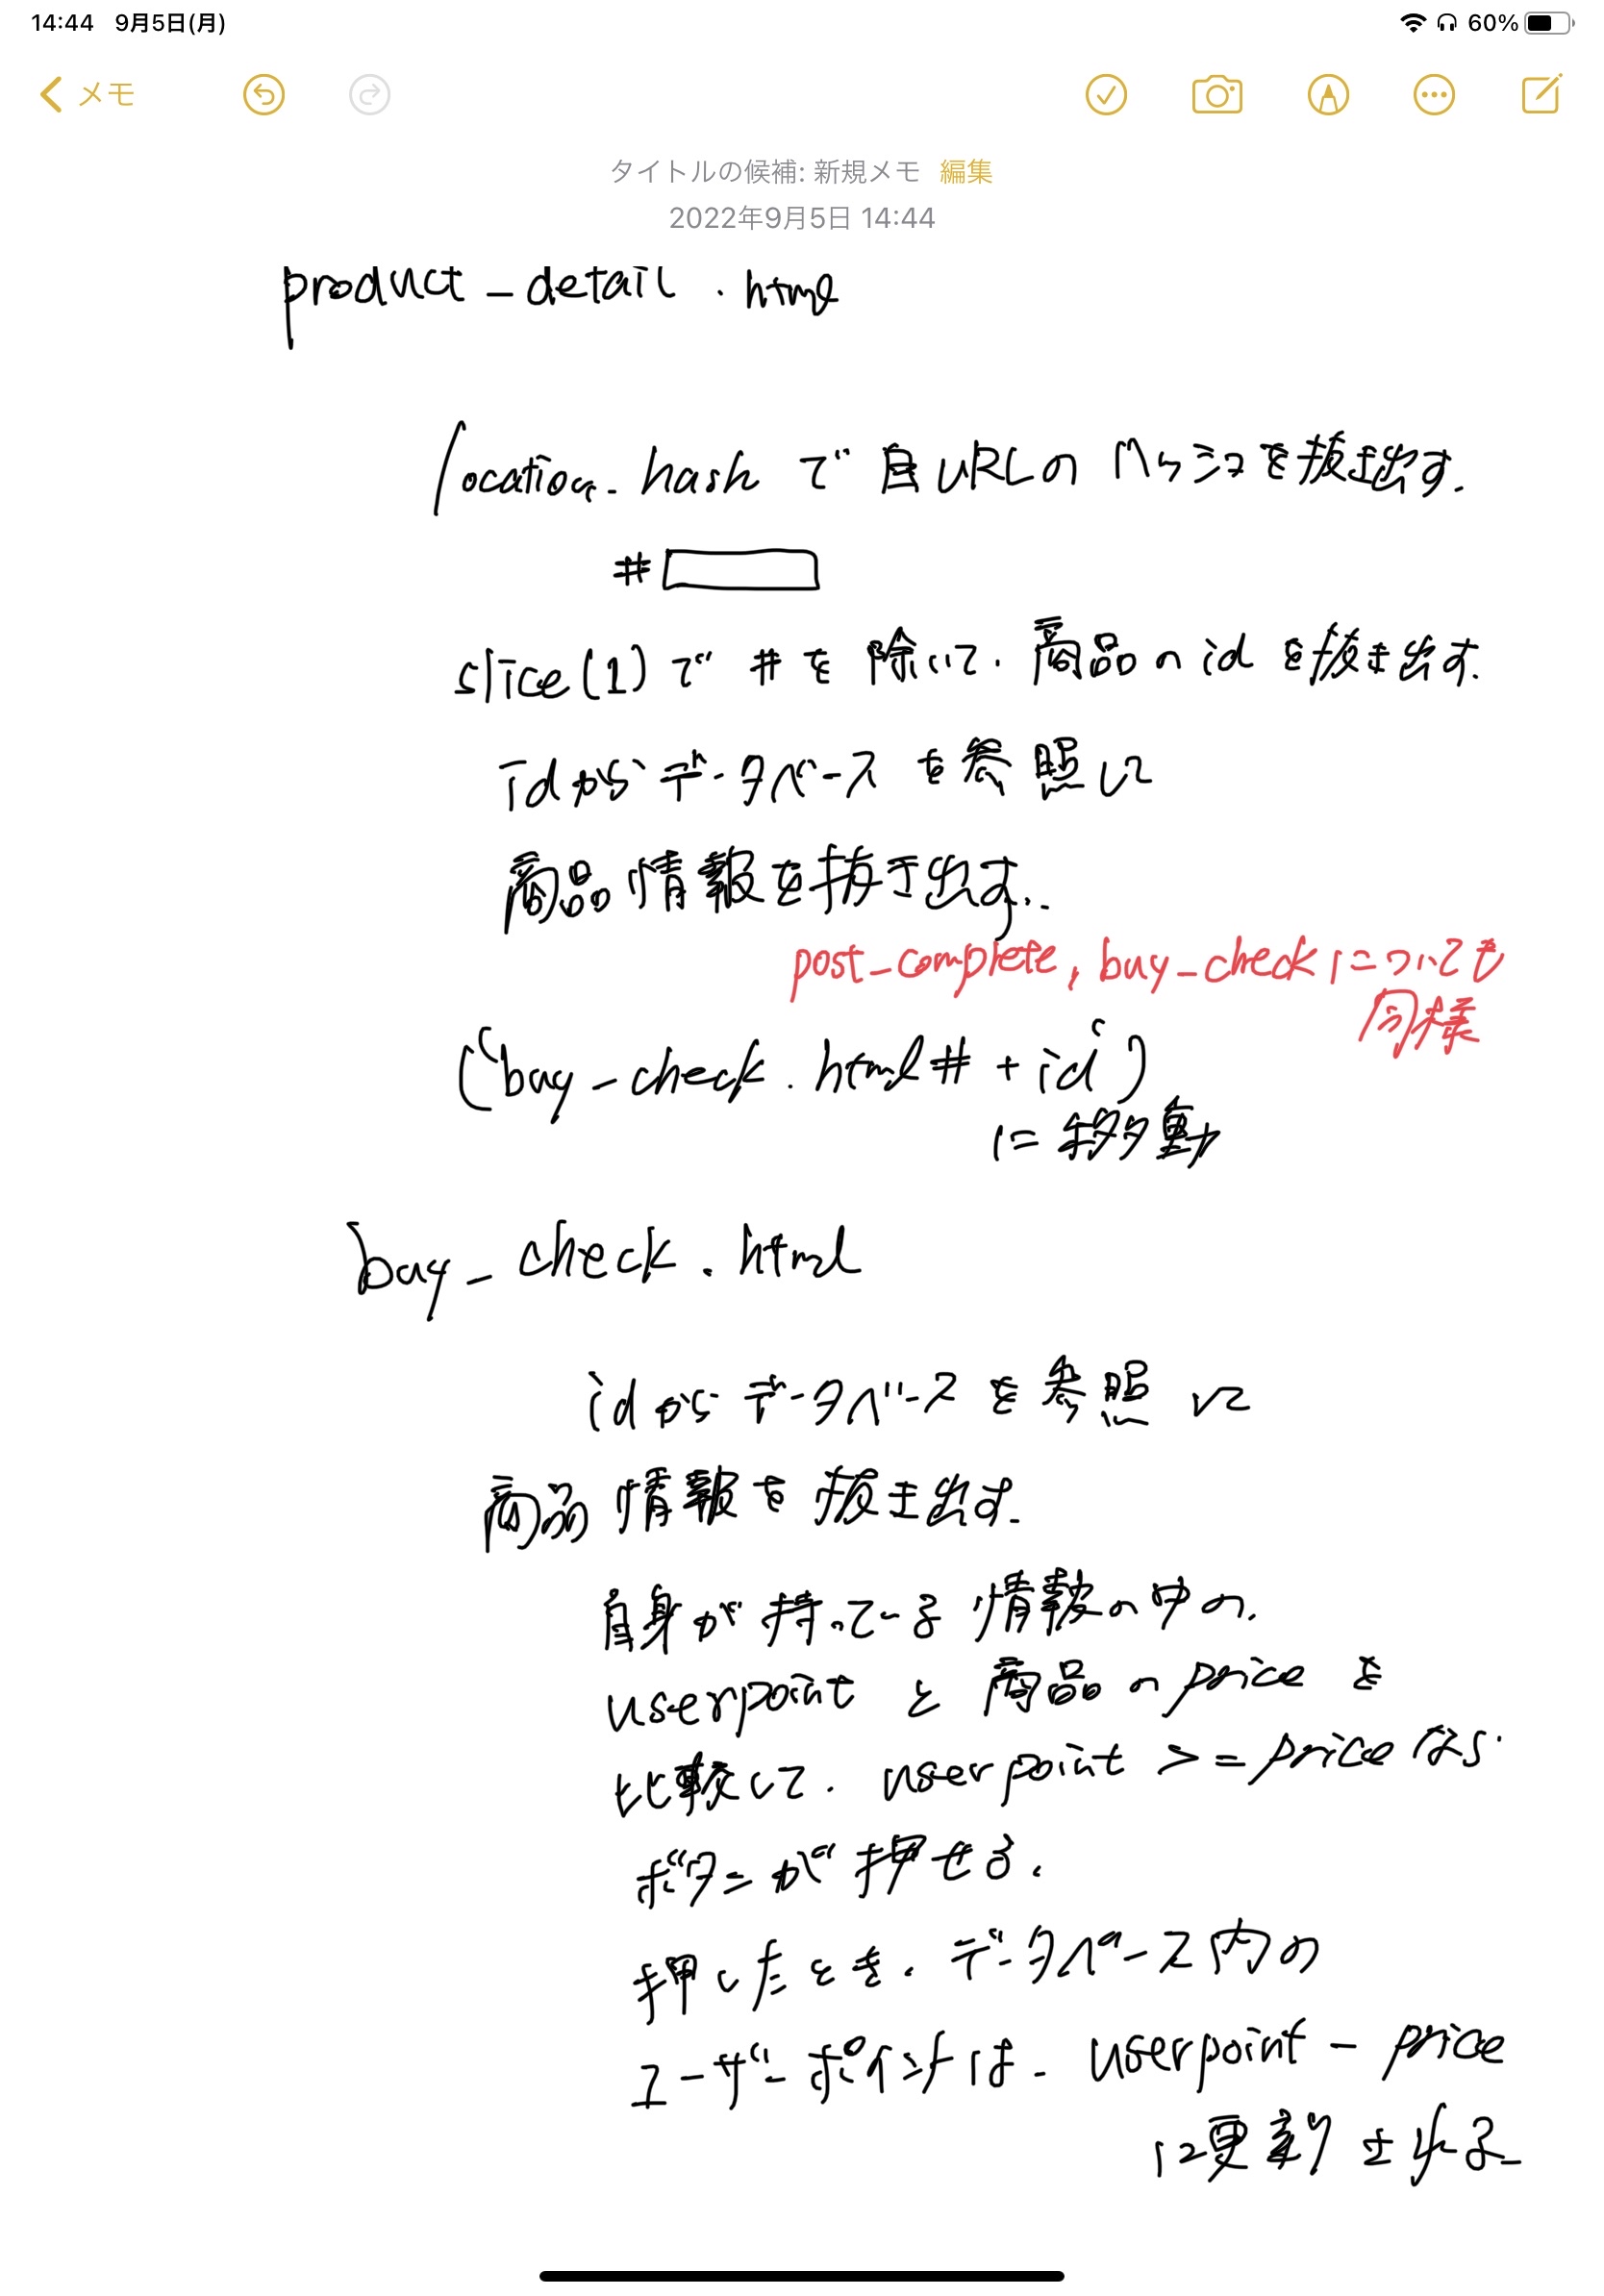 14:44 9月5日(月) 60%
メモ
タイトルの候補: 新規メモ 編集
2022年9月5日 14:44
product_detail.html
location.hashで自URLのハッシュを抜き出す.
#
slice(1)で#を除いて.商品のidを抜き出す.
idからデータベースを参照して
商品情報を抜き出す.
post_complete, buy_checkについても
同様
(buy_check.html# + id)
に移動
buy_check.html
idからデータベースを参照して
商品情報を抜き出す.
自身が持っている情報の中の.
userpointと商品のpriceを
比較して. userpoint >= priceなら
ボタンが押せる.
押したとき.データベース内の
ユーザーポイントは. userpoint - price
に更新される